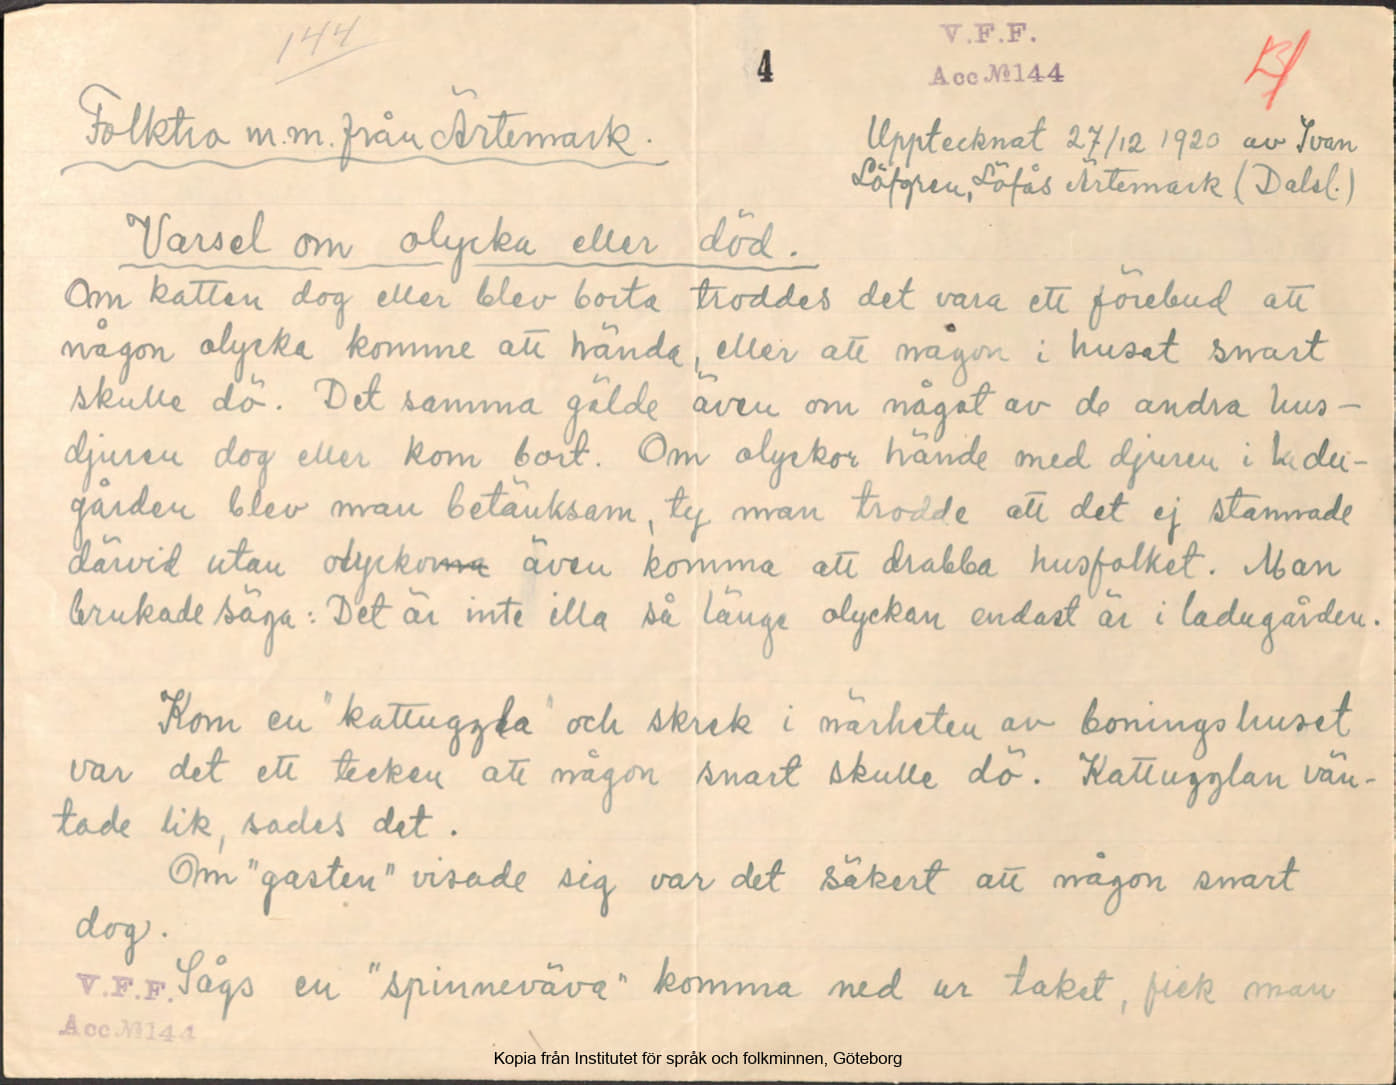 144
4
V.F.F.
Acc № 144
Folktro m.m. från Ärtemark.
Upptecknat 27/12 1920 av Ivan
Löfgren, Löfås Ärtemark (Dalsl.)
Varsel om olycka eller död.
Om katten dog eller blev borta troddes det vara ett förebud att
någon olycka komme att hända, eller att någon i huset snart
skulle dö. Det samma gälde även om något av de andra hus-
djuren dog eller kom bort. Om olyckor hände med djuren i ladu-
gården blev man betänksam, ty man trodde att det ej stannade
därvid utan olyckorna även komma att drabba husfolket. Man
brukade säga: Det är inte illa så länge olyckan endast är i ladugården.
Kom en "kattuggla" och skrek i närheten av boningshuset
var det ett tecken att någon snart skulle dö. Kattugglan vän-
tade lik, sades det.
Om "gasten" visade sig var det säkert att någon snart
dog.
Sågs en "spinneväva" komma ned ur taket, fick man
V.F.F.
Acc № 144
Kopia från Institutet för språk och folkminnen, Göteborg